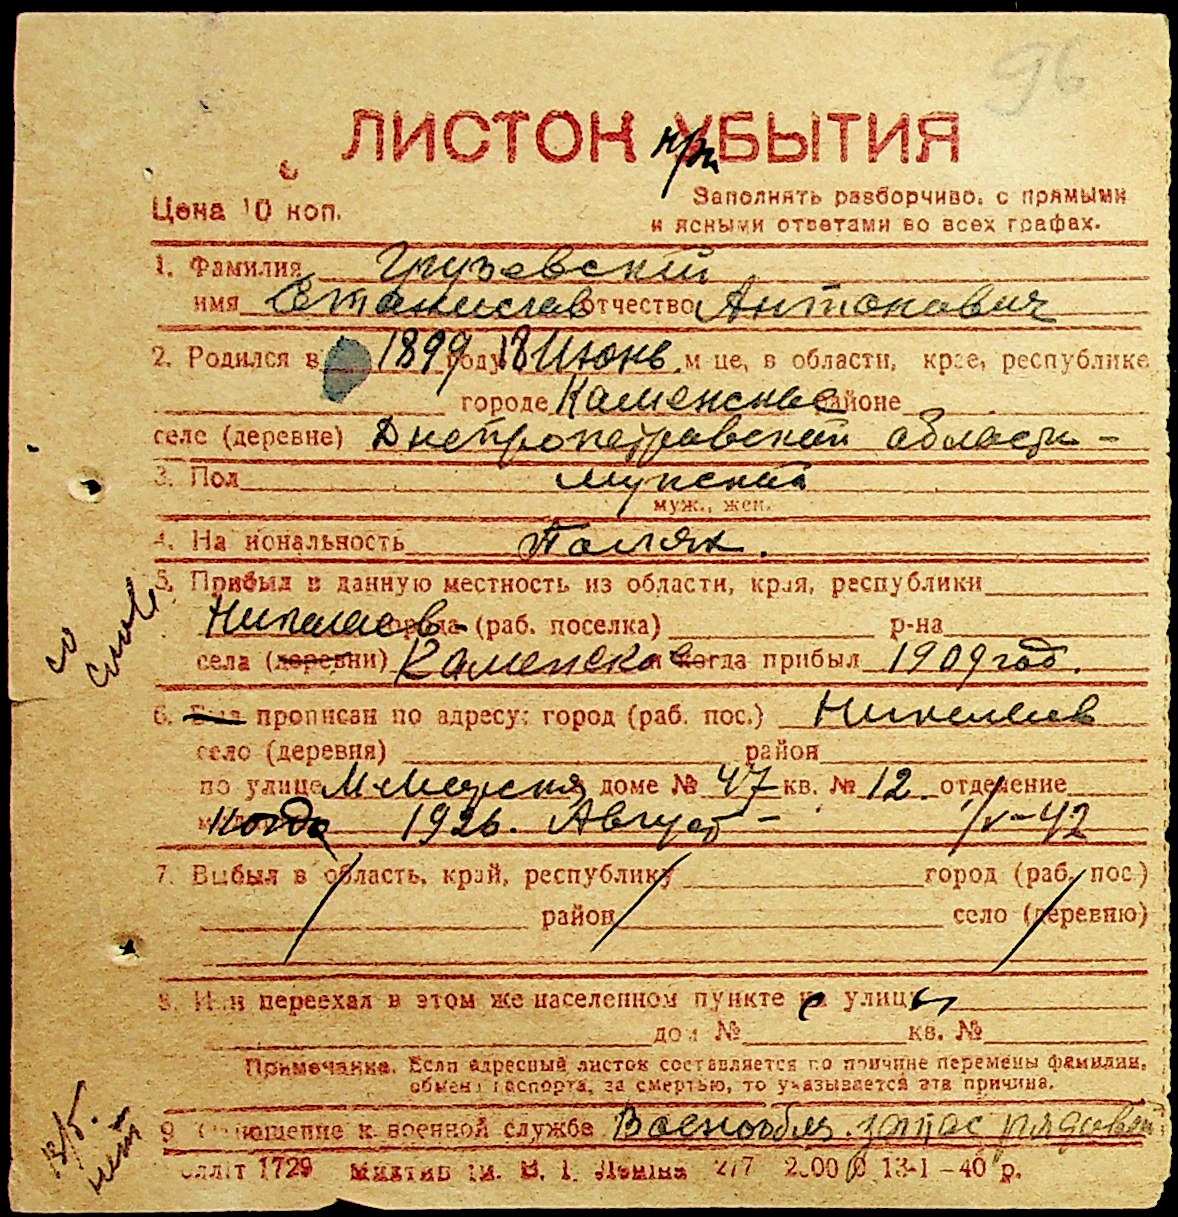 96
ЛИСТОК при УБЫТИЯ
Цена 10 коп.
Заполнять разборчиво, с прямыми
и ясными ответами во всех графах.
1. Фамилия Грузевский
имя Станислав отчество Антонович
2. Родился в 1899 году 18 Июнь м-це, в области, крае, республике
городе Каменское районе
селе (деревне) Днепропетровской области -
3. Пол мужской
муж., жен.
4. Национальность Поляк.
5. Прибыл в данную местность из области, края, республики
Николаев города (раб. поселка) р-на
села (деревни) Каменское и когда прибыл 1909 год.
6. Был прописан по адресу: город (раб. пос.) Николаев
село (деревня) район
по улице М-Морская доме № 47 кв. № 12. отделение
когда 1926. Август - 1/V-42
7. Выбыл в область, край, республику город (раб. пос.)
район село (деревню)
8. Или переехал в этом же населенном пункте с улицы
дом № кв. №
Примечание. Если адресный листок составляется по причине перемены фамилии,
обмена паспорта, за смертью, то указывается эта причина.
9. Отношение к военной службе Военнообяз. запас рядовой
со
слов
нет
1729 им. В. І. Леніна 277 13-1-40 р.